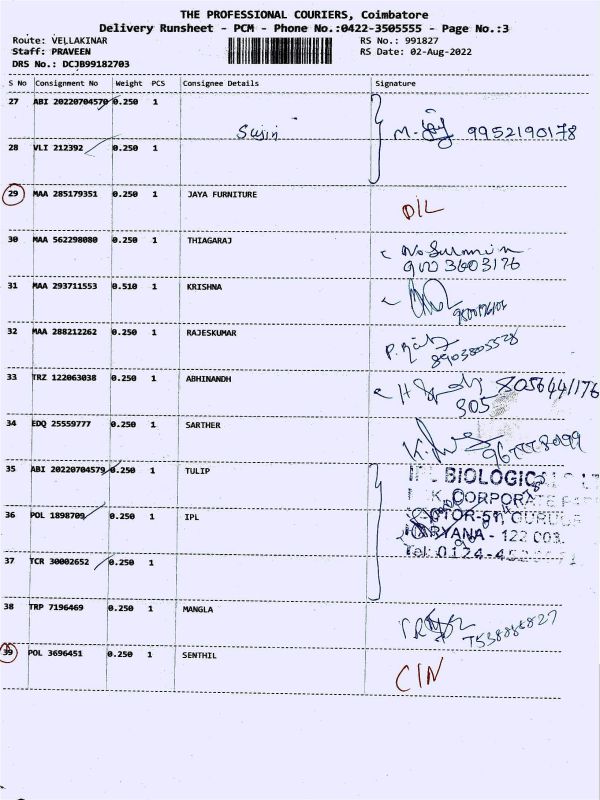 THE PROFESSIONAL COURIERS, Coimbatore
Delivery Runsheet - PCM - Phone No.:0422-3505555 - Page No.:3
Route: VELLAKINAR RS No.: 991827
Staff: PRAVEEN RS Date: 02-Aug-2022
DRS No.: DCJB99182703
S No Consignment No Weight PCS Consignee Details Signature
27 ABI 20220704570 0.250 1
Sujin M. 9952190178
28 VLI 212392 0.250 1
29 MAA 285179351 0.250 1 JAYA FURNITURE
D/L
30 MAA 562298080 0.250 1 THIAGARAJ
9003603176
31 MAA 293711553 0.510 1 KRISHNA
32 MAA 288212262 0.250 1 RAJESKUMAR
8903805528
33 TRZ 122063038 0.250 1 ABHINANDH
805
34 EDQ 25559777 0.250 1 SARTHER
35 ABI 20220704579 0.250 1 TULIP
BIOLOGIC
CORPORATE
36 POL 1898709 0.250 1 IPL
TOR-51, GURU
RYANA - 122 003.
37 TCR 30002652 0.250 1
Tel: 0124-45
38 TRP 7196469 0.250 1 MANGLA
39 POL 3696451 0.250 1 SENTHIL
C/N